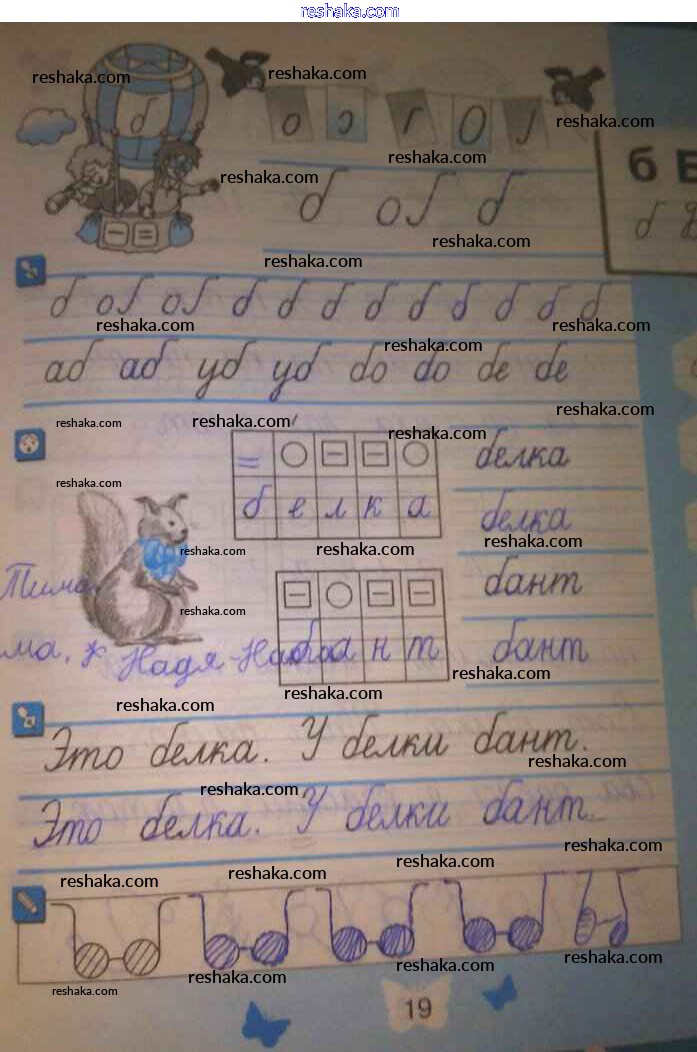 reshaka.com
б
б Б
б
б б б б б б б б б б б б
аб аб уб уб бо бо бе бе
б е л к а
белка
белка
Тима
б а н т
бант
бант
ма, к Надя -
Это белка. У белки бант.
Это белка. У белки бант.
19